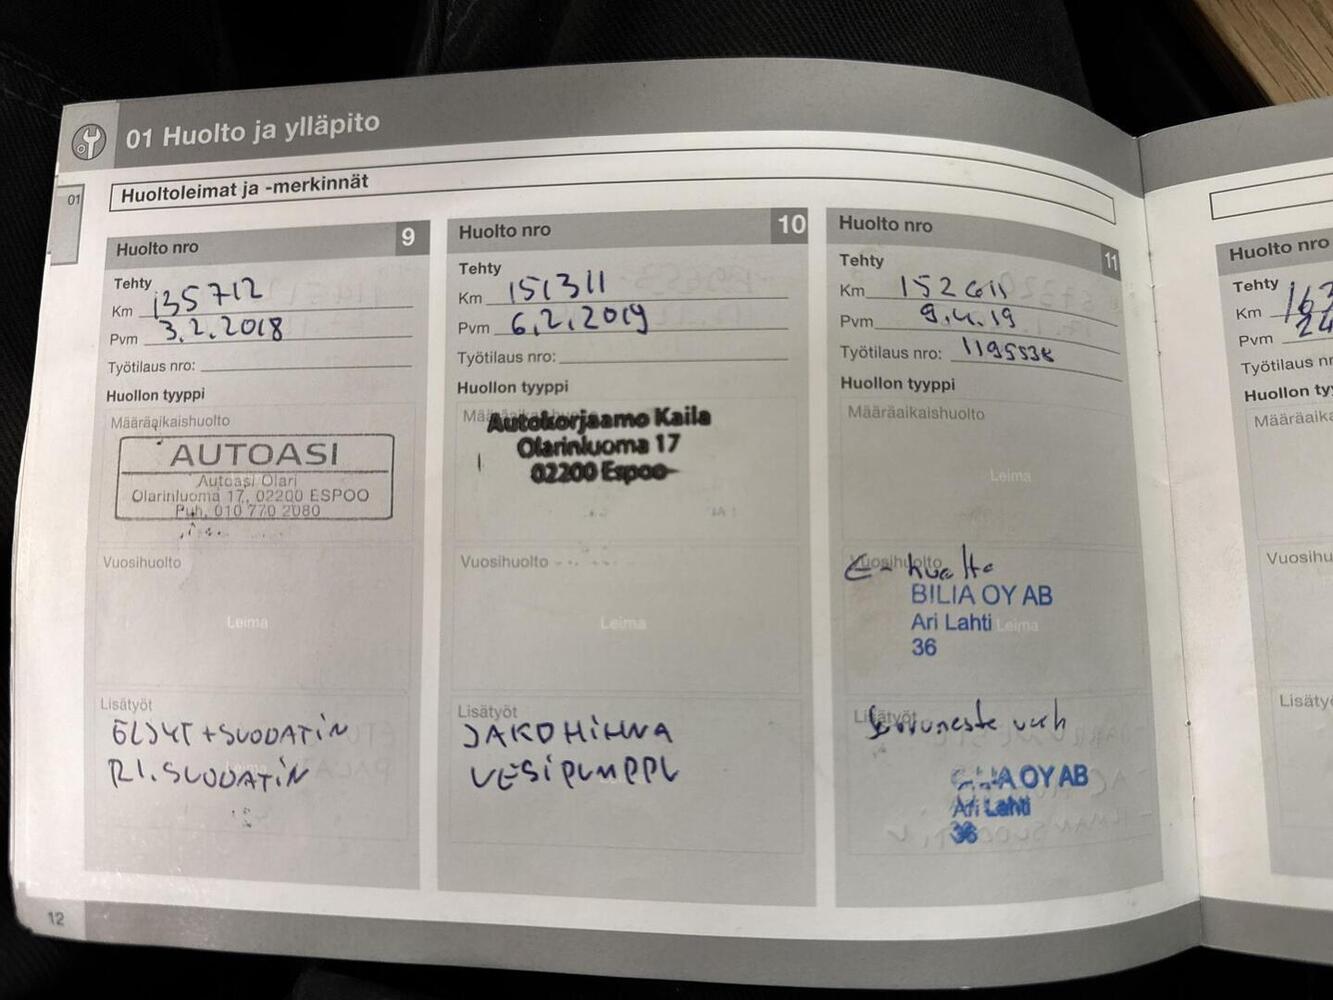 01 Huolto ja ylläpito
01
Huoltoleimat ja -merkinnät
Huolto nro 9
Tehty
Km 135712
Pvm 3.2.2018
Työtilaus nro:
Huollon tyyppi
Määräaikaishuolto
AUTOASI
Autoasi Olari
Olarinluoma 17, 02200 ESPOO
Puh. 010 770 2080
Vuosihuolto
Leima
Lisätyöt
ÖLJYT + SUODATIN
RI. SUODATIN
Huolto nro 10
Tehty
Km 151311
Pvm 6.2.2019
Työtilaus nro:
Huollon tyyppi
Autokorjaamo Kaila
Olarinluoma 17
02200 Espoo
Vuosihuolto
Leima
Lisätyöt
JAKOHIHNA
VESIPUMPPU
Huolto nro 11
Tehty
Km 152611
Pvm 9.4.19
Työtilaus nro: 1195538
Huollon tyyppi
Määräaikaishuolto
Leima
Vuosihuolto
huolto
BILIA OY AB
Ari Lahti
Leima
36
Lisätyöt
Jarruneste vaih
BILIA OY AB
Ari Lahti
36
12
Huolto nro
Tehty
Km
Pvm 24
Työtilaus